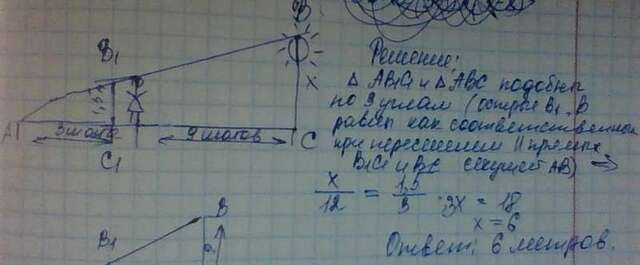 B
B₁
Решение:
Δ AB₁C₁ и Δ ABC подобны
x
по 2 углам (острые B₁, B
A
3 шага
9 шагов
C
равны как соответственные
C₁
при пересечении || прямых
B₁C₁ и BC секущей AB) ⇒
x/12 = 1,5/3 · 3x = 18
x = 6
B
B₁
Ответ: 6 метров.